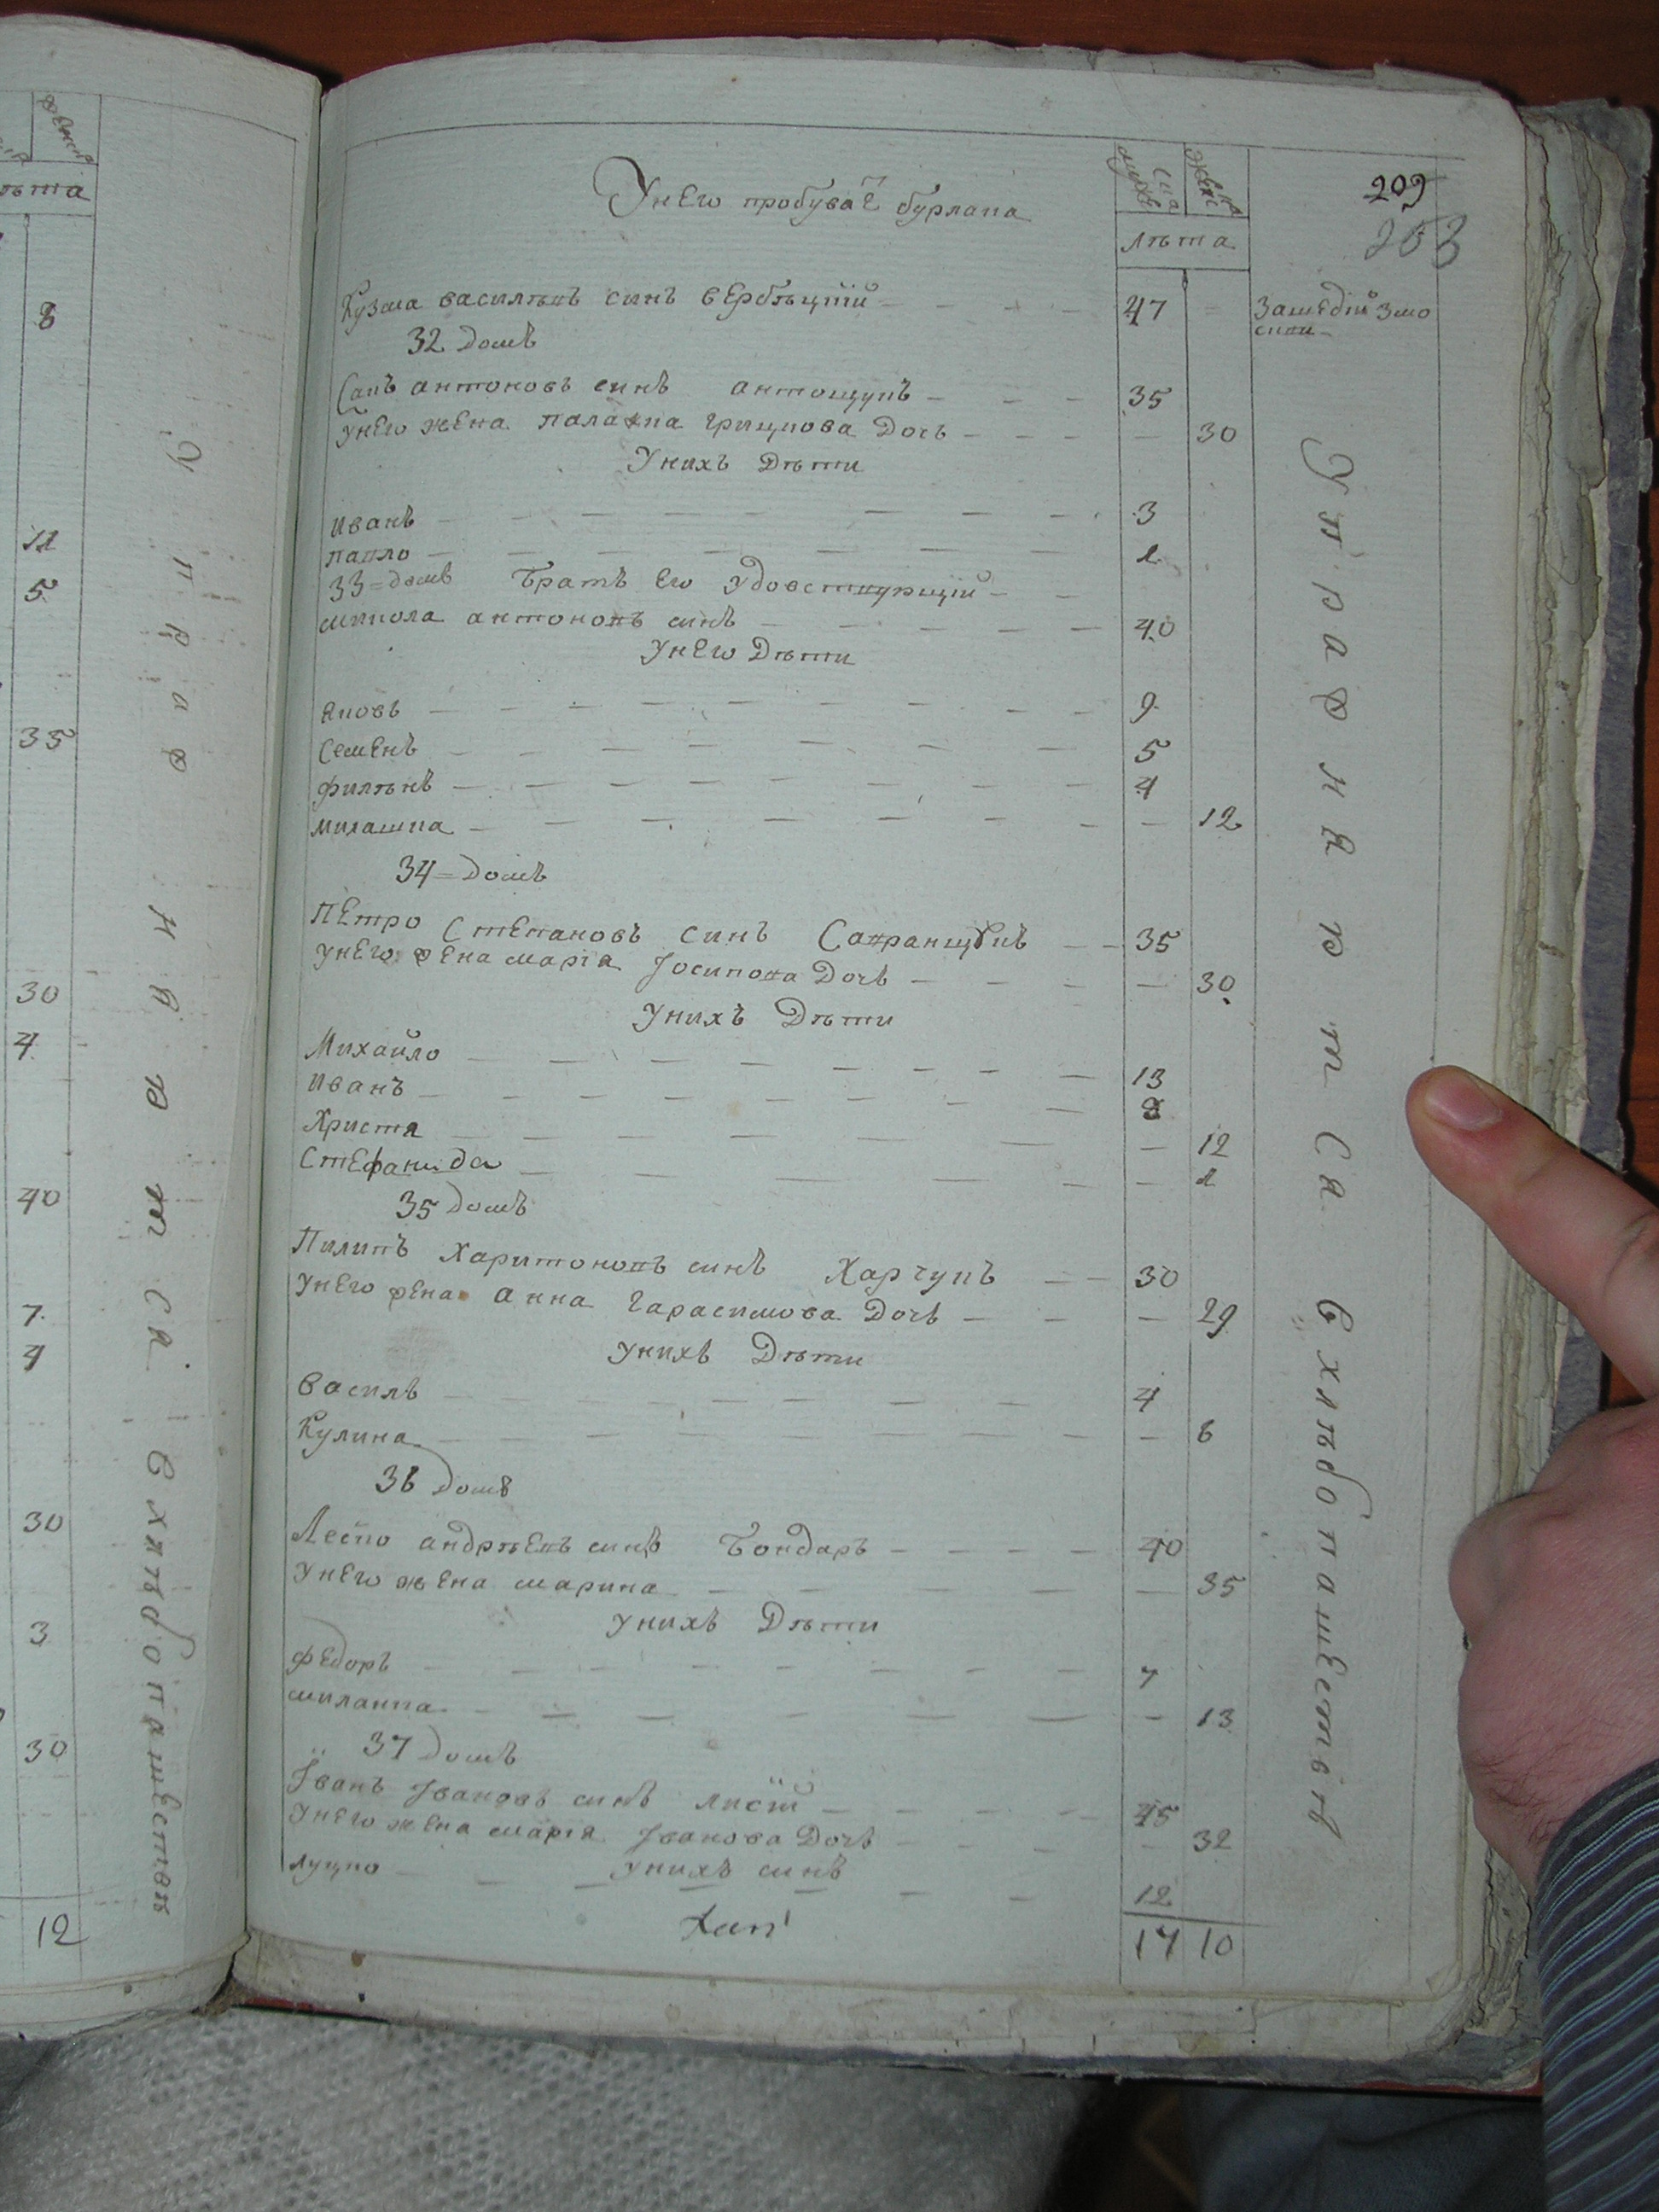 209
203
Унего пробувае бурлака
мужеска женска
лѣта
Кузма василѣвъ синъ вербѣцкїй 47 Зашедій Змо
32 домъ
Сакъ антоновъ синъ антощукъ 35
Унего жена палажка грицкова дочь 30
Унихъ дѣти
иванъ 3
павло 1
33 = домъ братъ его удовствующїй
микола антоновъ синъ 40
Унего дѣти
яковъ 9
Семенъ 5
филѣпъ 4
милашка 12
34 = домъ
Петро Степановъ синъ Сапранщукъ 35
Унего жена марія Іосипова дочь 30
Унихъ дѣти
Михайло 13
иванъ 8
Христя 12
Стефанида 1
35 домъ
Пилипъ Харитоновъ синъ Харчукъ 30
Унего жена анна гарасимова дочь 29
Унихъ дѣти
василь 4
Кулина 6
36 домъ
Леско андрѣевъ синъ бондаръ 40
Унего жена марина 35
Унихъ дѣти
федоръ 7
миланка 13
37 домъ
Іванъ Івановъ синъ 45
Унего жена марія Іванова дочь 32
Унихъ синъ
луцко 12
17 10
Упражняютса в хлѣбопашествѣ
женска
лѣта
8
11
5
35
30
4
40
7
4
30
3
30
12
Упражняютса в хлѣбопашествѣ